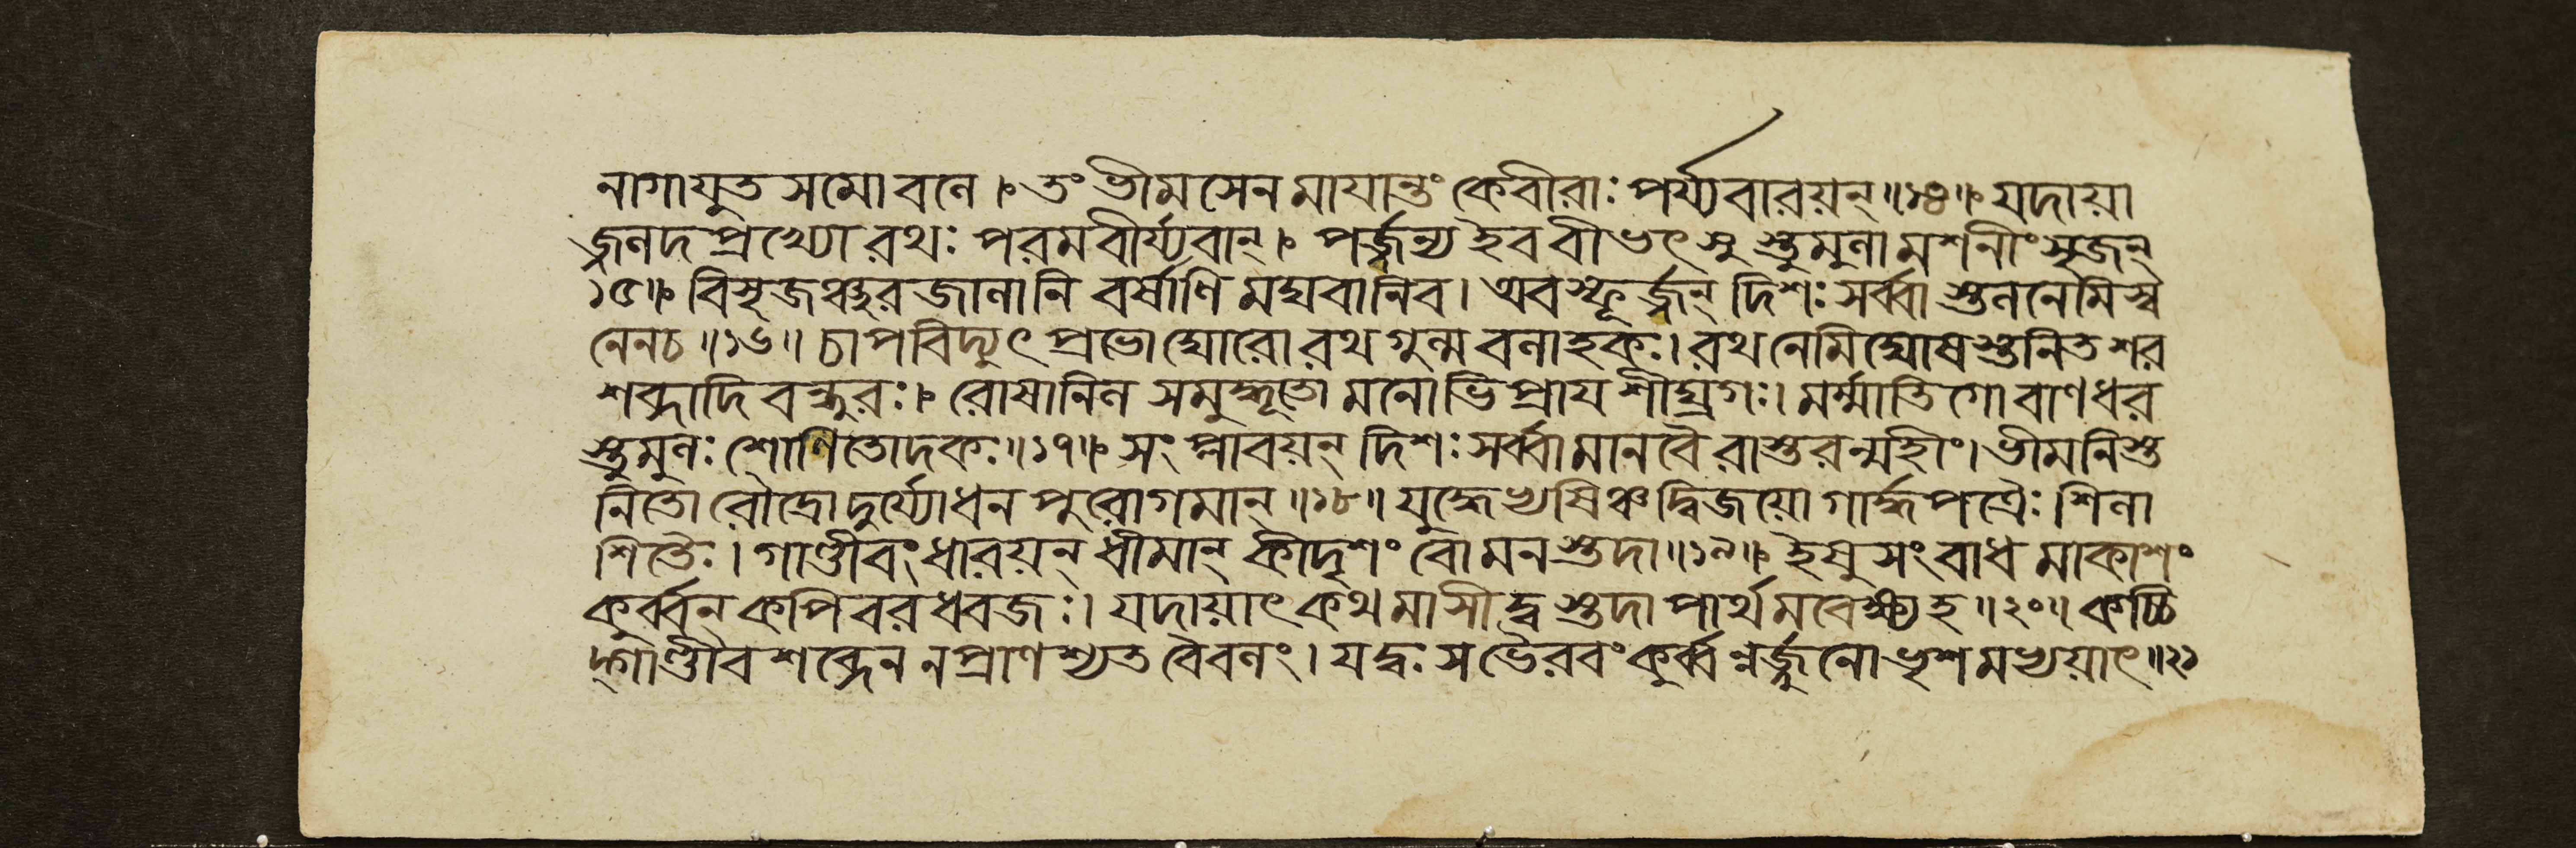 নাগাযুত সমোবলে।৽ তং ভীমসেন মাযান্তং কেবীরাঃ পর্য্যবারয়ন্॥১৪॥৽ যদায়া
জ্জলদ প্রখ্যো রথঃ পরমবীর্য্যবান্।৽ পর্জ্জন্য ইব বীভৎসু স্তুমুলা মশনীং সৃজন্
১৫॥৽ বিসৃজঞ্ছর জালানি বর্ষাণি মঘবানিব। অবস্ফূর্জ্জন্ দিশঃ সর্ব্বা স্তলনেমিস্ব
নেনচ॥১৬॥ চাপবিদ্যুৎ প্রভোঘোরো রথ গুল্ম বলাহকঃ। রথ নেমিঘোষ স্তনিত শর
শব্দাদি বন্ধুরঃ।৽ রোষানিল সমুদ্ধূতো মনোভি প্রায শীঘ্রগঃ। মর্ম্মাতিগো বাণধর
স্তুমুলঃ শোণিতোদকঃ॥১৭॥৽ সংপ্লাবয়ন্ দিশঃ সর্ব্বা মানবৈ রাস্তরন্মহীং। ভীমনিস্ত
নিতো রৌদ্রো দুর্য্যোধন পুরোগমান্॥১৮॥ যুদ্ধেভ্যষিঞ্চ দ্বিজয়ো গার্দ্ধপত্রৈঃ শিলা
শিতৈঃ। গাণ্ডীবং ধারয়ন্ ধীমান্ কীদৃশং বো মনস্তদা॥১৯॥৽ ইষু সংবাধ মাকাশং
কুর্ব্বন্ কপিবরধ্বজঃ। যদায়াৎ কথ মাসী দ্ব স্তদা পার্থমবেক্ষ্য হ॥২০॥ কচ্চি
দ্গাণ্ডীব শব্দেন নপ্রাণশ্যত বৈবলং। যদ্বঃ সভৈরবং কুর্ব্ব ন্নর্জ্জুনো ভৃশ মভ্যয়াৎ॥২১